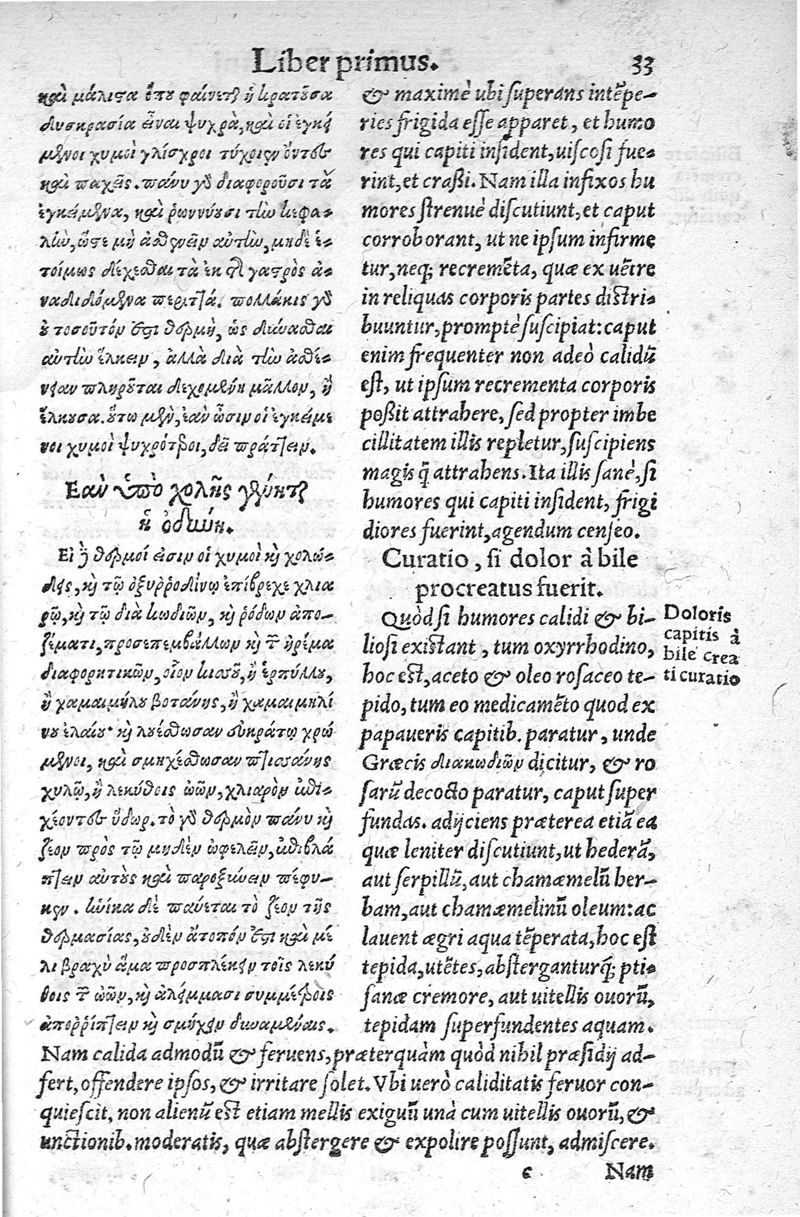 Liber primus. 33
καὶ μάλιστα ὅπου φαίνεται ἡ κρατοῦσα
δυσκρασία εἶναι ψυχρὰ, καὶ οἱ ἐγκεί
μενοι χυμοὶ γλίσχροι τύχοιεν ὄντες
καὶ παχεῖς. πάνυ γὰρ διαφοροῦσι τὰ
ἐγκείμενα, καὶ ῥωννύουσι τὴν κεφα-
λὴν, ὥστε μὴ ἀσθενεῖν αὐτὴν, μηδὲ ἑ-
τοίμως δέχεσθαι τὰ ἐκ τῆς γαστρὸς ἀ-
ναδιδόμενα περιττά. πολλάκις γὰρ
οὐ τοσοῦτόν ἐστι θερμὴ, ὡς δύνασθαι
αὐτὴν ἕλκειν, ἀλλὰ διὰ τὴν ἀσθέ-
νειαν πληροῦται δεχομένη μᾶλλον, ἢ
ἕλκουσα. οὕτω μὲν, ἐὰν ὦσιν οἱ ἐγκείμε
νοι χυμοὶ ψυχρότεροι, δεῖ πράττειν.
Ἐὰν ὑπὸ χολῆς γένηται
ἡ ὀδύνη.
Εἰ δὲ θερμοί εἰσιν οἱ χυμοὶ καὶ χολώ-
δεις, καὶ τῷ ὀξυῤῥοδίνῳ ἐπίβρεχε χλια
ρῷ, καὶ τῷ διὰ κωδιῶν, καὶ ῥόδων ἀπο-
ζέματι, προσεπεμβάλλων καὶ τῶν ἠρέμα
διαφορητικῶν, οἷον κισσοῦ, ἢ ἑρπύλλου,
ἢ χαμαιμήλου βοτάνης, ἢ χαμαιμηλί
νου ἐλαίου· καὶ λουέσθωσαν εὐκράτῳ χρώ
μενοι, καὶ σμηχέσθωσαν πτισάνης
χυλῷ, ἢ λεκύθοις ὠῶν, χλιαρὸν ἐπι-
χέοντες ὕδωρ. τὸ γὰρ θερμὸν πάνυ καὶ
ζέον πρὸς τῷ μηδὲν ὠφελεῖν, ἐπιβλά
πτειν αὐτοὺς καὶ παροξύνειν πέφυ-
κεν. ἡνίκα δὲ παύεται τὸ ζέον τῆς
θερμασίας, οὐδὲν ἄτοπόν ἐστι καὶ μέ
λι βραχὺ ἅμα προσπλέκειν τοῖς λεκύ
θοις τῶν ὠῶν, καὶ ἀλείμμασι συμμέτροις
ἀποῤῥίπτειν καὶ σμήχειν δυναμένοις.
& maximè ubi superans intẽpe-
ries frigida esse apparet, et humo
res qui capiti insident, uiscosi fue-
rint, et crassi. Nam illa infixos hu
mores strenuè discutiunt, et caput
corroborant, ut ne ipsum infirme
tur, neq; recremẽta, quæ ex uẽtre
in reliquas corporis partes distri-
buuntur, promptè suscipiat: caput
enim frequenter non adeò calidũ
est, ut ipsum recrementa corporis
possit attrahere, sed propter imbe
cillitatem illis repletur, suscipiens
magis q̃ attrahens. Ita illis sanè, si
humores qui capiti insident, frigi
diores fuerint, agendum censeo.
Curatio, si dolor à bile
procreatus fuerit.
Quòd si humores calidi & bi-
liosi existant, tum oxyrrhodino,
hoc est, aceto & oleo rosaceo te-
pido, tum eo medicamẽto quod ex
papaueris capitib. paratur, unde
Græcis διακωδιῶν dicitur, & ro
sarũ decocto paratur, caput super
fundas. adijciens præterea etiã ea
quæ leniter discutiunt, ut hederã,
aut serpillũ, aut chamæmelũ her-
bam, aut chamæmelinũ oleum: ac
lauent ægri aqua tẽperata, hoc est
tepida, utẽtes, abstergantúrq; pti-
sanæ cremore, aut uitellis ouorũ,
tepidam superfundentes aquam.
Doloris
capitis à
bile crea
ti curatio
Nam calida admodũ & feruens, præterquàm quòd nihil præsidij ad-
fert, offendere ipsos, & irritare solet. Vbi uerò caliditatis feruor con-
quiescit, non alienũ est etiam mellis exiguũ unà cum uitellis ouorũ, &
unctionib. moderatis, quæ abstergere & expolire possunt, admiscere.
c Nam